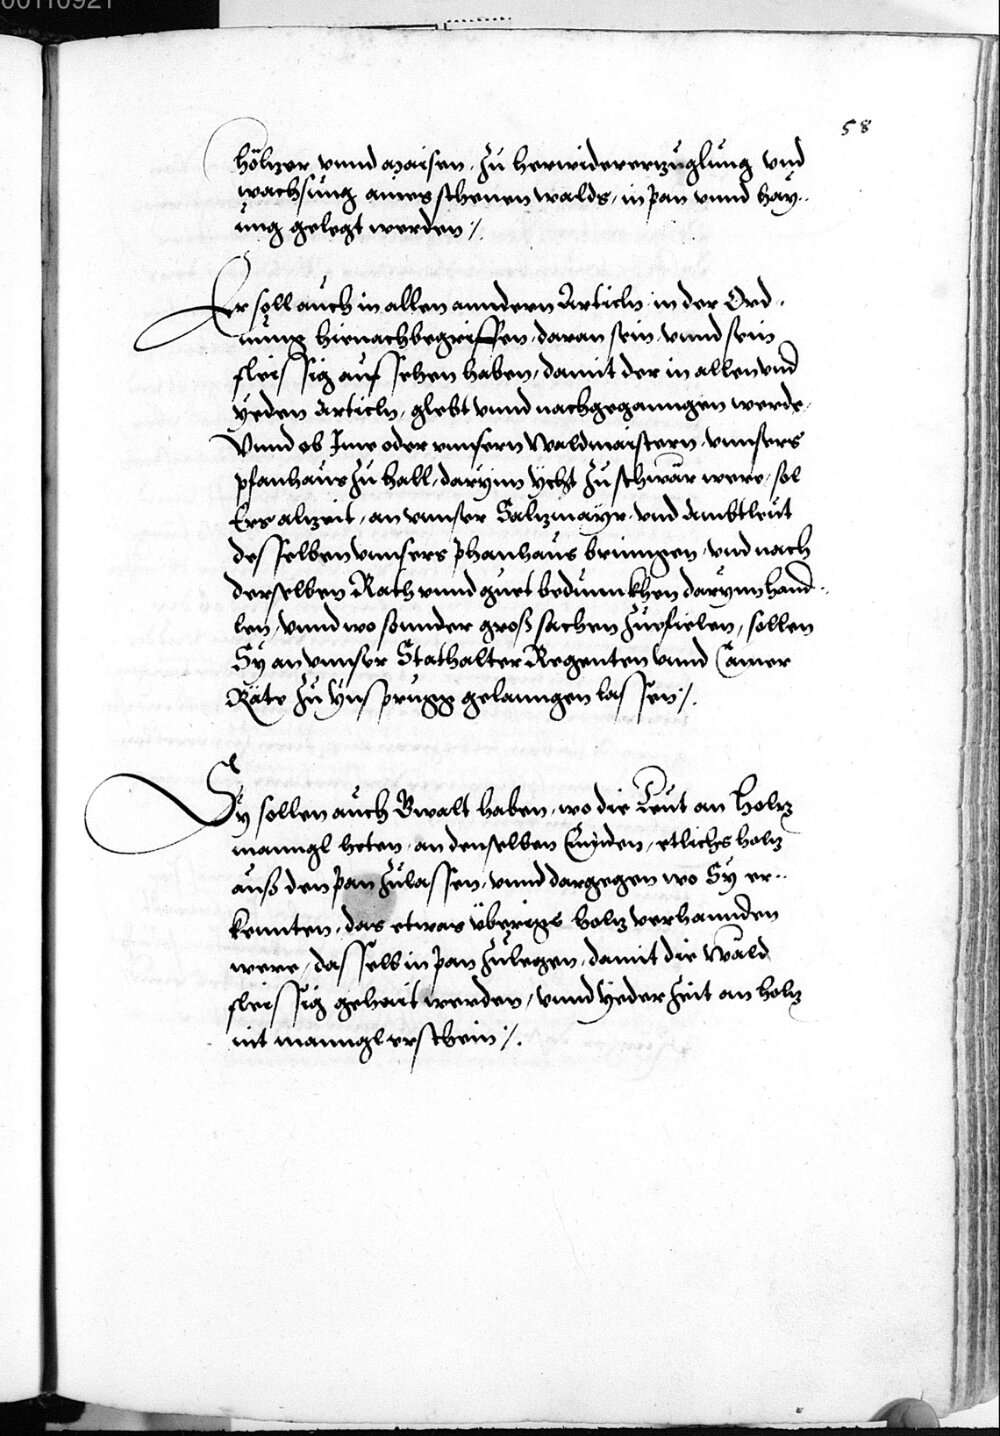 00110921
58
höltzer vnnd maisen, zu herwidererzuglung vnd
wachsung aines schenen walds, in pan vnnd hay,,
ung gelegt werden /.
Er soll auch in allen anndern Articln in der Ord,
nung hienachbegriffen, daran sein, vnnd sein
fleissig aufsehen haben, damit der in allen vnd
yeden Articln, glebt vnnd nachgeganngen werde,
Vnnd ob Ime oder vnnsern Waldmaistern, vnnsers
pfanhaus zu hall, darynn ycht zu schwär were, sol
Ers alzeit, an vnnser Saltzmayr, vnd Ambtleut
desselben vnnsers phanhaus bringen, vnd nach
derselben Rath vnnd guet bedunnkhen darynn hand,,
len, vnnd wo sonnder groß sachen zuefielen, sollen
Sy an vnnser Stathalter Regenten vnnd Camer
Räte zu Ynsprugg gelanngen lassen /.
Sy sollen auch Gwalt haben, wo die Leut an Holtz
manngl heten, an denselben Ennden, etlichs holtz
auß den pan zulassen, vnnd dargegen wo Sy er,,
kennten, das etwas überigs holtz verhannden
were, dasselb in pan zulegen, damit die Wäld
fleissig gehait werden, vnnd yeder zeit an holtz
nit manngl erschein /.